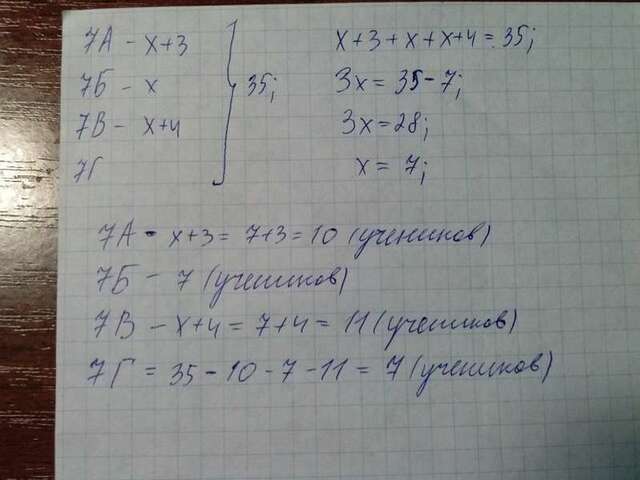 7А - x+3
7Б - x
7В - x+4
7Г
35;
x+3+x+x+4=35;
3x=35-7;
3x=28;
x=7;
7А - x+3=7+3=10 (учеников)
7Б - 7 (учеников)
7В - x+4=7+4=11 (учеников)
7Г = 35-10-7-11=7 (учеников)